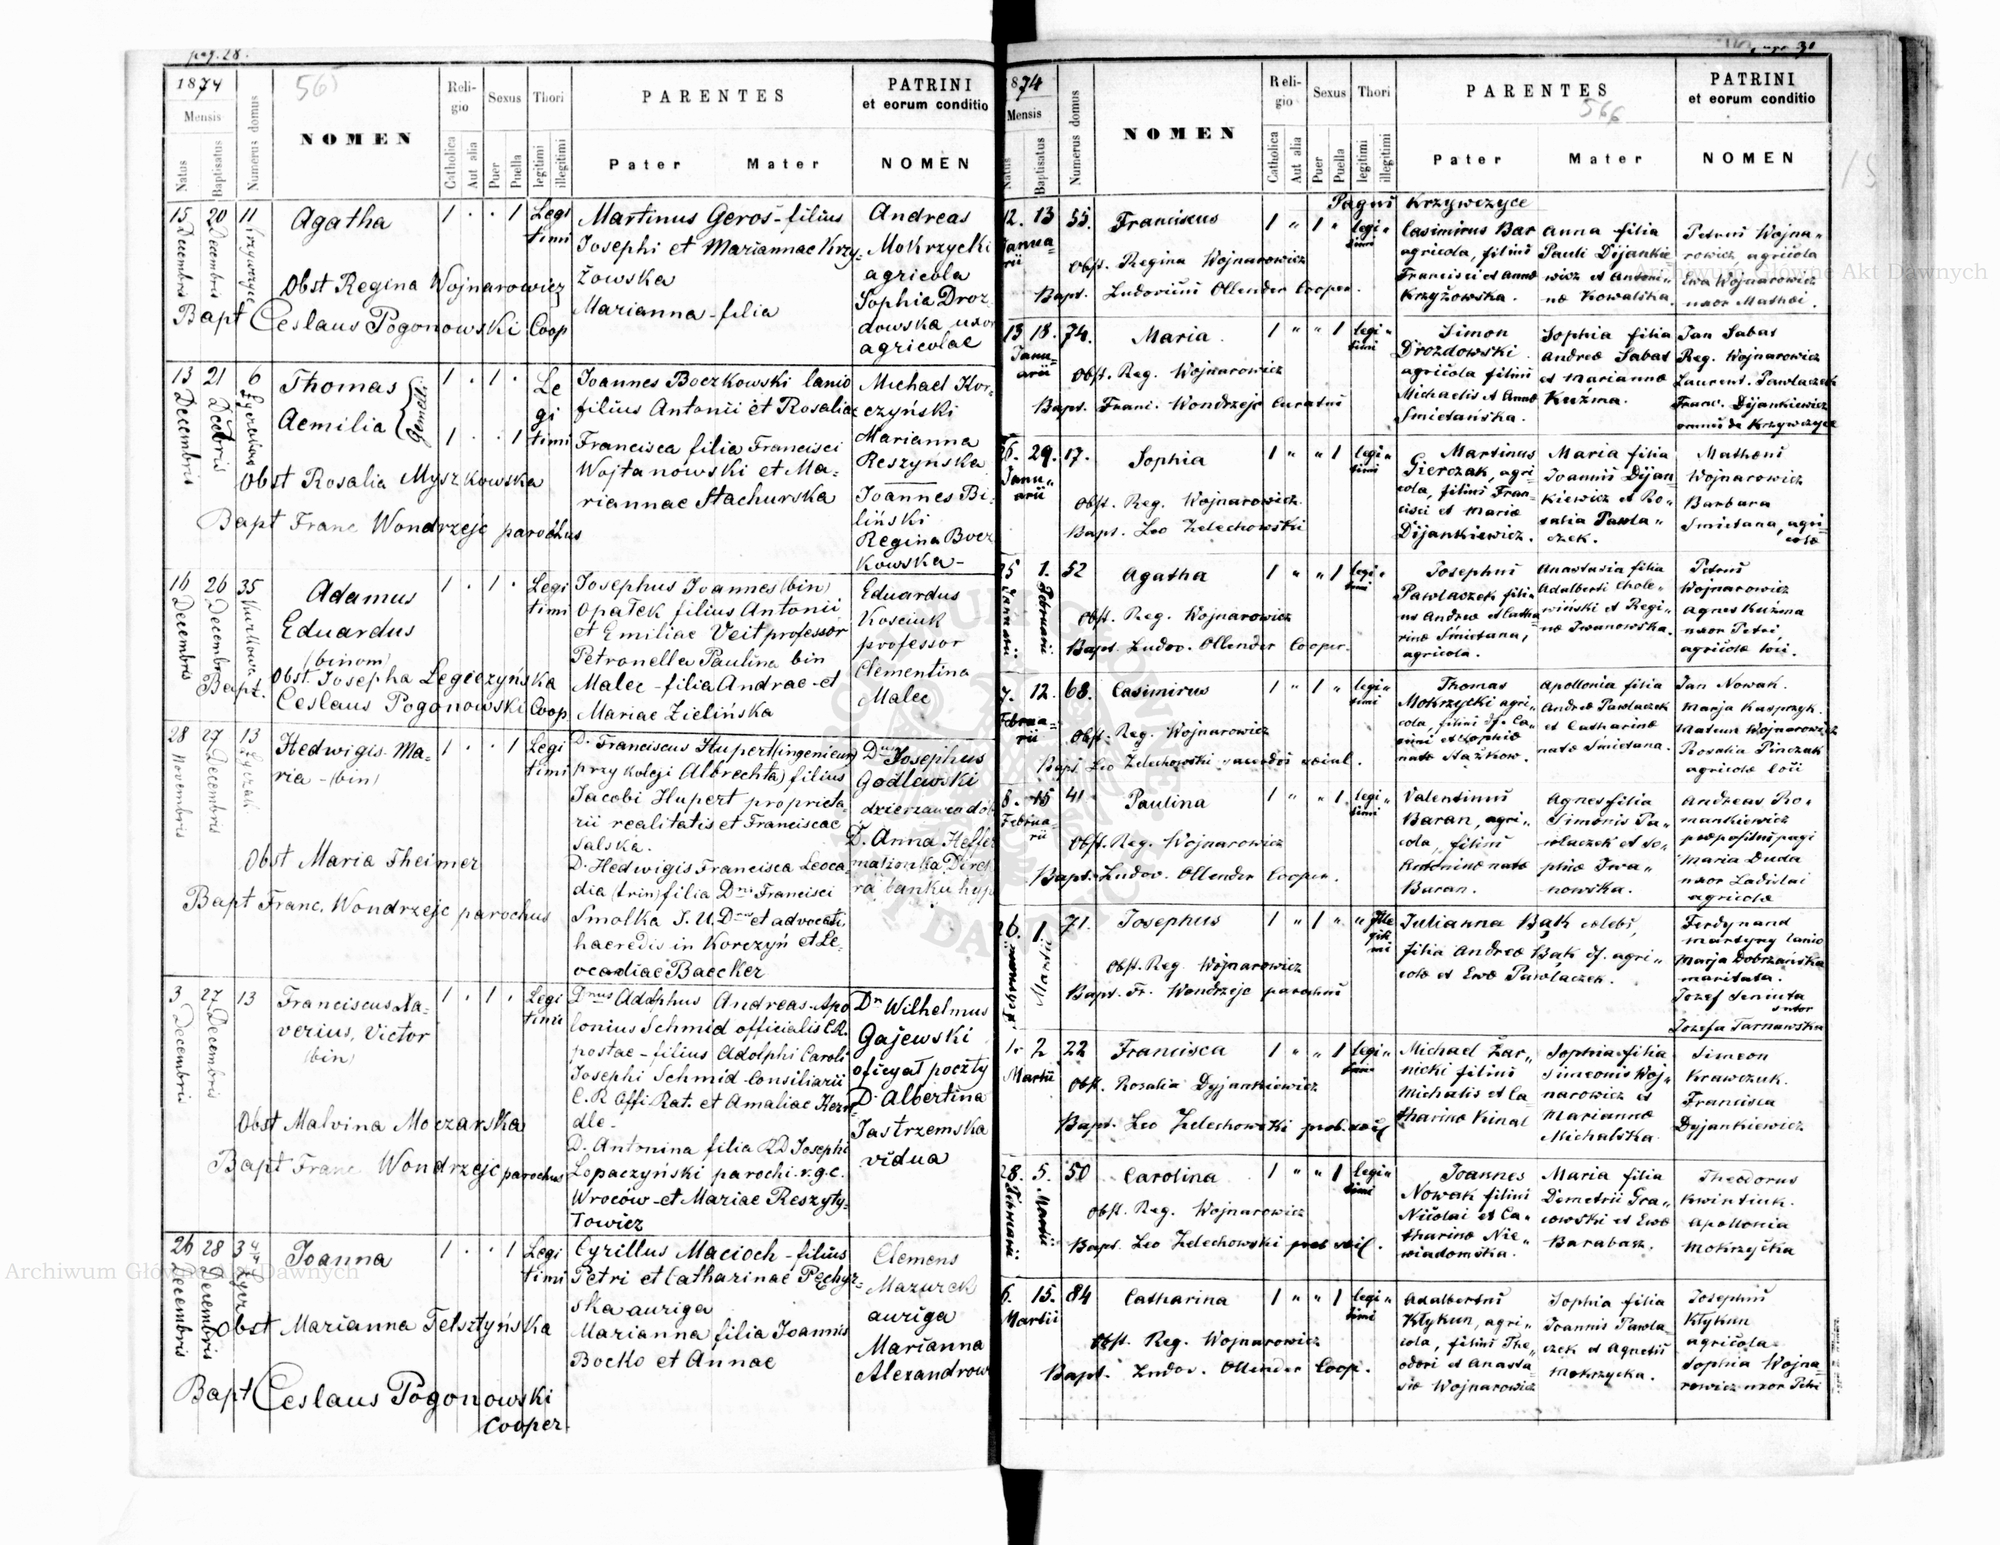 pag. 28.
1874
565
Mensis
Natus
Baptisatus
Numerus domus
NOMEN
Reli-
gio
Catholica
Aut alia
Sexus
Puer
Puella
Thori
legitimi
illegitimi
PARENTES
Pater Mater
PATRINI
et eorum conditio
NOMEN
15 20 11
Decembris
Decembris
Krzywczyce
Agatha
1 . . 1 Legi
timi
Obst Regina Wojnarowicz
Bapt Ceslaus Pogonowski Coop
Martinus Geroś - filius
Josephi et Mariannae Krzy-
żowska
Marianna - filia
Andreas
Mokrzycki
agricola
Sophia Droz
dowska uxor
agricolae
13 21 6
Decembris
Decbris
Thomas
Aemilia
Gemelli
1 . 1 . Le
gi
1 . . 1 timi
Obst Rosalia Myszkowska
Bapt Franc Wondrzejc parochus
Joannes Boczkowski lanio
filius Antonii et Rosaliae
Francisca filia Francisci
Wojtanowski et Ma-
riannae Stachurska
Michael Kor-
czyński
Marianna
Reszyńska
Joannes Bi-
liński
Regina Bocz
kowska -
16 26 35
Decembris
Decembris
Kurkowa
Adamus
Eduardus
(binom)
1 . 1 . Legi
timi
Obst. Josepha Legieczyńska
Bapt. Ceslaus Pogonowski Coop
Josephus Joannes (bin)
Opałek filius Antonii
et Emiliae Veit professor
Petronella Paulina bin
Malec - filia Andrae et
Mariae Zielińska
Eduardus
Kosciuk
professor
Clementina
Malec
28 27 13
Novembris
Decembris
Hedwigis Ma-
ria - (bin)
1 . . 1 Legi
timi
Obst Maria Theimer
Bapt Franc. Wondrzejc parochus
D. Franciscus Hupert (ingenieur
przy koleji Albrechta) filius
Jacobi Hupert proprieta-
rii realitatis et Franciscae
Salska.
D. Hedwigis Francisca Leoca-
dia (trin) filia Dni Francisci
Smolka I. U. Dris et advocati
haeredis in Korczyń et Le-
ocadiae Baecker
Dnus Josephus
Godlewski
dzierzawca dób
D. Anna Hefter
małżonka Direk
ra banku hyp
3 27 13
Decembris
Decembris
Franciscus Xa-
verius, Victor
(bin)
1 . 1 . Legi
timi
Obst Malvina Moczarska
Bapt Franc Wondrzejc parochus
Dnus Adolphus Andreas Apo
lonius Schmid officialis C.R.
postae - filius Adolphi Caroli
Josephi Schmid Consiliarii
C. R Offi Rat. et Amaliae Kern
dle -
D. Antonina filia RD Josephi
Lopaczyński parochi r.g.c.
Wroców et Mariae Reszyty-
łowicz
Dn Wilhelmus
Gajewski
oficyał poczty
D. Albertina
Jastrzemska
vidua
26 28 3 4/4
Decembris
Decembris
Joanna
1 . . 1 Legi
timi
Obst Marianna Telsztyńska
Bapt Ceslaus Pogonowski
Cooper.
Cyrillus Macioch - filius
Petri et Catharinae Pechyr-
ska auriga
Marianna filia Joannis
Bocko et Annae
Clemens
Mazurek
auriga
Marianna
Alexandrow
1874
566
Mensis
Natus
Baptisatus
Numerus domus
NOMEN
Reli-
gio
Catholica
Aut alia
Sexus
Puer
Puella
Thori
legitimi
illegitimi
PARENTES
Pater Mater
PATRINI
et eorum conditio
NOMEN
Pagus Krzywczyce
12. 13 55.
Janua-
rii
Franciscus
1 " 1 " legi "
timi
Obst. Regina Wojnarowicz
Bapt. Ludovicus Ollender Cooper.
Casimirus Bar
agricola, filius
Francisci et Annae
Krzyżowska.
Anna filia
Pauli Dijankie
wicz et Antoni-
nae Kowalska.
Petrus Wojna-
rowicz, agricola
Ewa Wojnarowicz
uxor Mathei.
13 18. 74.
Janu-
arii
Maria
1 " " 1 legi "
timi
Obst. Reg. Wojnarowicz
Bapt. Franc. Wondrzejc Curatus
Simon
Drozdowski
agricola filius
Michaelis et Annae
Smietańska.
Sophia filia
Andreae Sabat
et Mariannae
Kuźma.
Jan Sabat
Reg. Wojnarowicz
Laurent. Pawlaczek
Franc. Dijankiewicz
omnes de Krzywczyce
26. 29. 17.
Janu-
arii
Sophia
1 " " 1 legi "
timi
Obst. Reg. Wojnarowicz
Bapt. Leo Zelechowski
Martinus
Gierczak, agri-
cola, filius Fran-
cisci et Mariae
Dijankiewicz.
Maria filia
Joannis Dijan-
kiewicz et Ro-
salia Pawla-
czek.
Matheus
Wojnarowicz
Barbara
Smietana, agri-
colae
25 1. 52
Januarii
Februarii
Agatha
1 " " 1 legi "
timi
Obst. Reg. Wojnarowicz
Bapt. Ludov. Ollender Cooper.
Josephus
Pawlaczek fili-
us Andreae et Catha
rinae Smietana,
agricola.
Anastasia filia
Adalberti Chole-
wiński et Regi-
nae Iwanowska.
Petrus
Wojnarowicz
Agnes Kuźma
uxor Petri,
agricolae loci.
7. 12. 68.
Februa-
rii
Casimirus
1 " 1 " legi "
timi
Obst. Reg. Wojnarowicz
Bapt. Leo Zelechowski sacerdos social.
Thomas
Mokrzycki agri-
cola, filius Ca-
simi et Sophiae
natae Stażkow.
Apollonia filia
Andreae Pawlaczek
et Catharinae
natae Smietana.
Jan Nowak.
Marja Kasprzyk.
Mateus Wojnarowicz
Rosalia Pinczak
agricolae loci
8. 15 41
Februa-
rii
Paulina
1 " " 1. legi "
timi
Obst. Reg. Wojnarowicz
Bapt. Ludov. Ollender Cooper.
Valentinus
Baran, agri-
cola, filius
Antoninae natae
Baran.
Agnes filia
Simonis Pa-
wlaczek et So-
phiae Iwa-
nowska.
Andreas Ro-
mankiewicz
praepositus pagi
Maria Duda
uxor Ladislai
agricolae
26. 1. 71.
Martii
Josephus
1 " 1 " " Ille
giti
mi
Obst. Reg. Wojnarowicz
Bapt. Fr. Wondrzejc parochus
Julianna Bąk caelebs,
filia Andreae Bąk agri-
colae et Ewae Pawlaczek.
Ferdynand
Martyny lanio
Marja Dobrzańska
maritata.
Jozef Seniuta
sutor
Jozefa Tarnawska
1. 2 22
Martii
Francisca
1 " " 1 legi "
timi
Obst. Rosalia Dyjankiewicz
Bapt. Leo Zelechowski
Michael Żar-
nicki filius
Michaelis et Ca
tharinae Kinal
Sophia filia
Simeonis Woj-
narowicz et
Mariannae
Michalska
Simeon
Krawczuk.
Francisca
Dyjankiewicz
28. 5. 50
Februarii.
Martii
Carolina
1 " " 1 legi "
timi
Obst. Reg. Wojnarowicz
Bapt. Leo Zelechowski
Joannes
Nowak filius
Nicolai et Ca-
tharinae Nie-
wiadomska.
Maria filia
Demetrii Gra-
cowski et Ewae
Barabasz.
Theodorus
Kwintiuk.
Apollonia
Mokrzycka
6. 15. 84
Martii
Catharina
1 " " 1 legi "
timi
Obst. Reg. Wojnarowicz
Bapt. Ludov. Ollender Coop.
Adalbertus
Kłykun, agri-
cola, filius The-
odori et Anasta-
siae Wojnarowicz
Sophia filia
Joannis Pawla-
czek et Agnetis
Mokrzycka.
Josephus
Kłykun
agricola
Sophia Wojna
rowicz uxor Petri
Archiwum Główne Akt Dawnych
Archiwum Główne Akt Dawnych